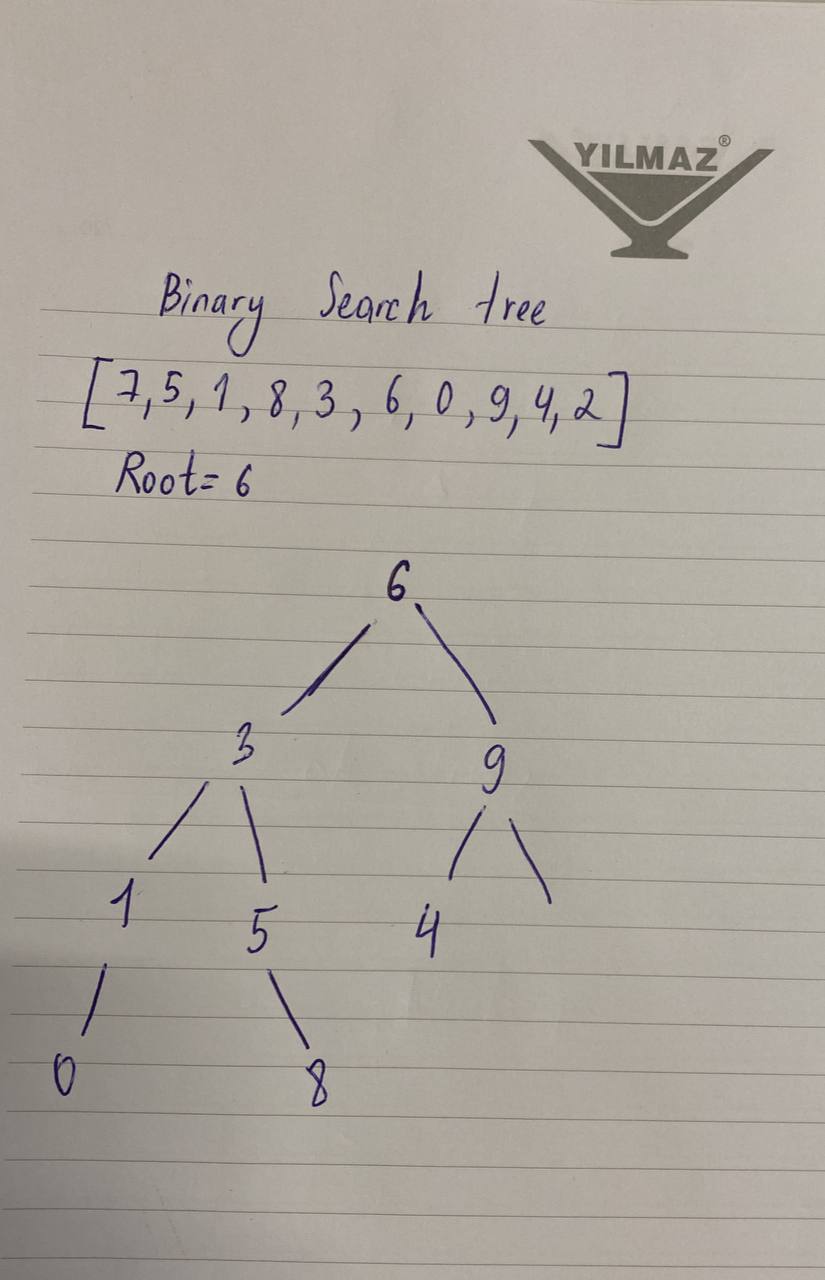 YILMAZ®
Binary Search tree
[7, 5, 1, 8, 3, 6, 0, 9, 4, 2]
Root= 6
6
3 9
1 5 4
0 8